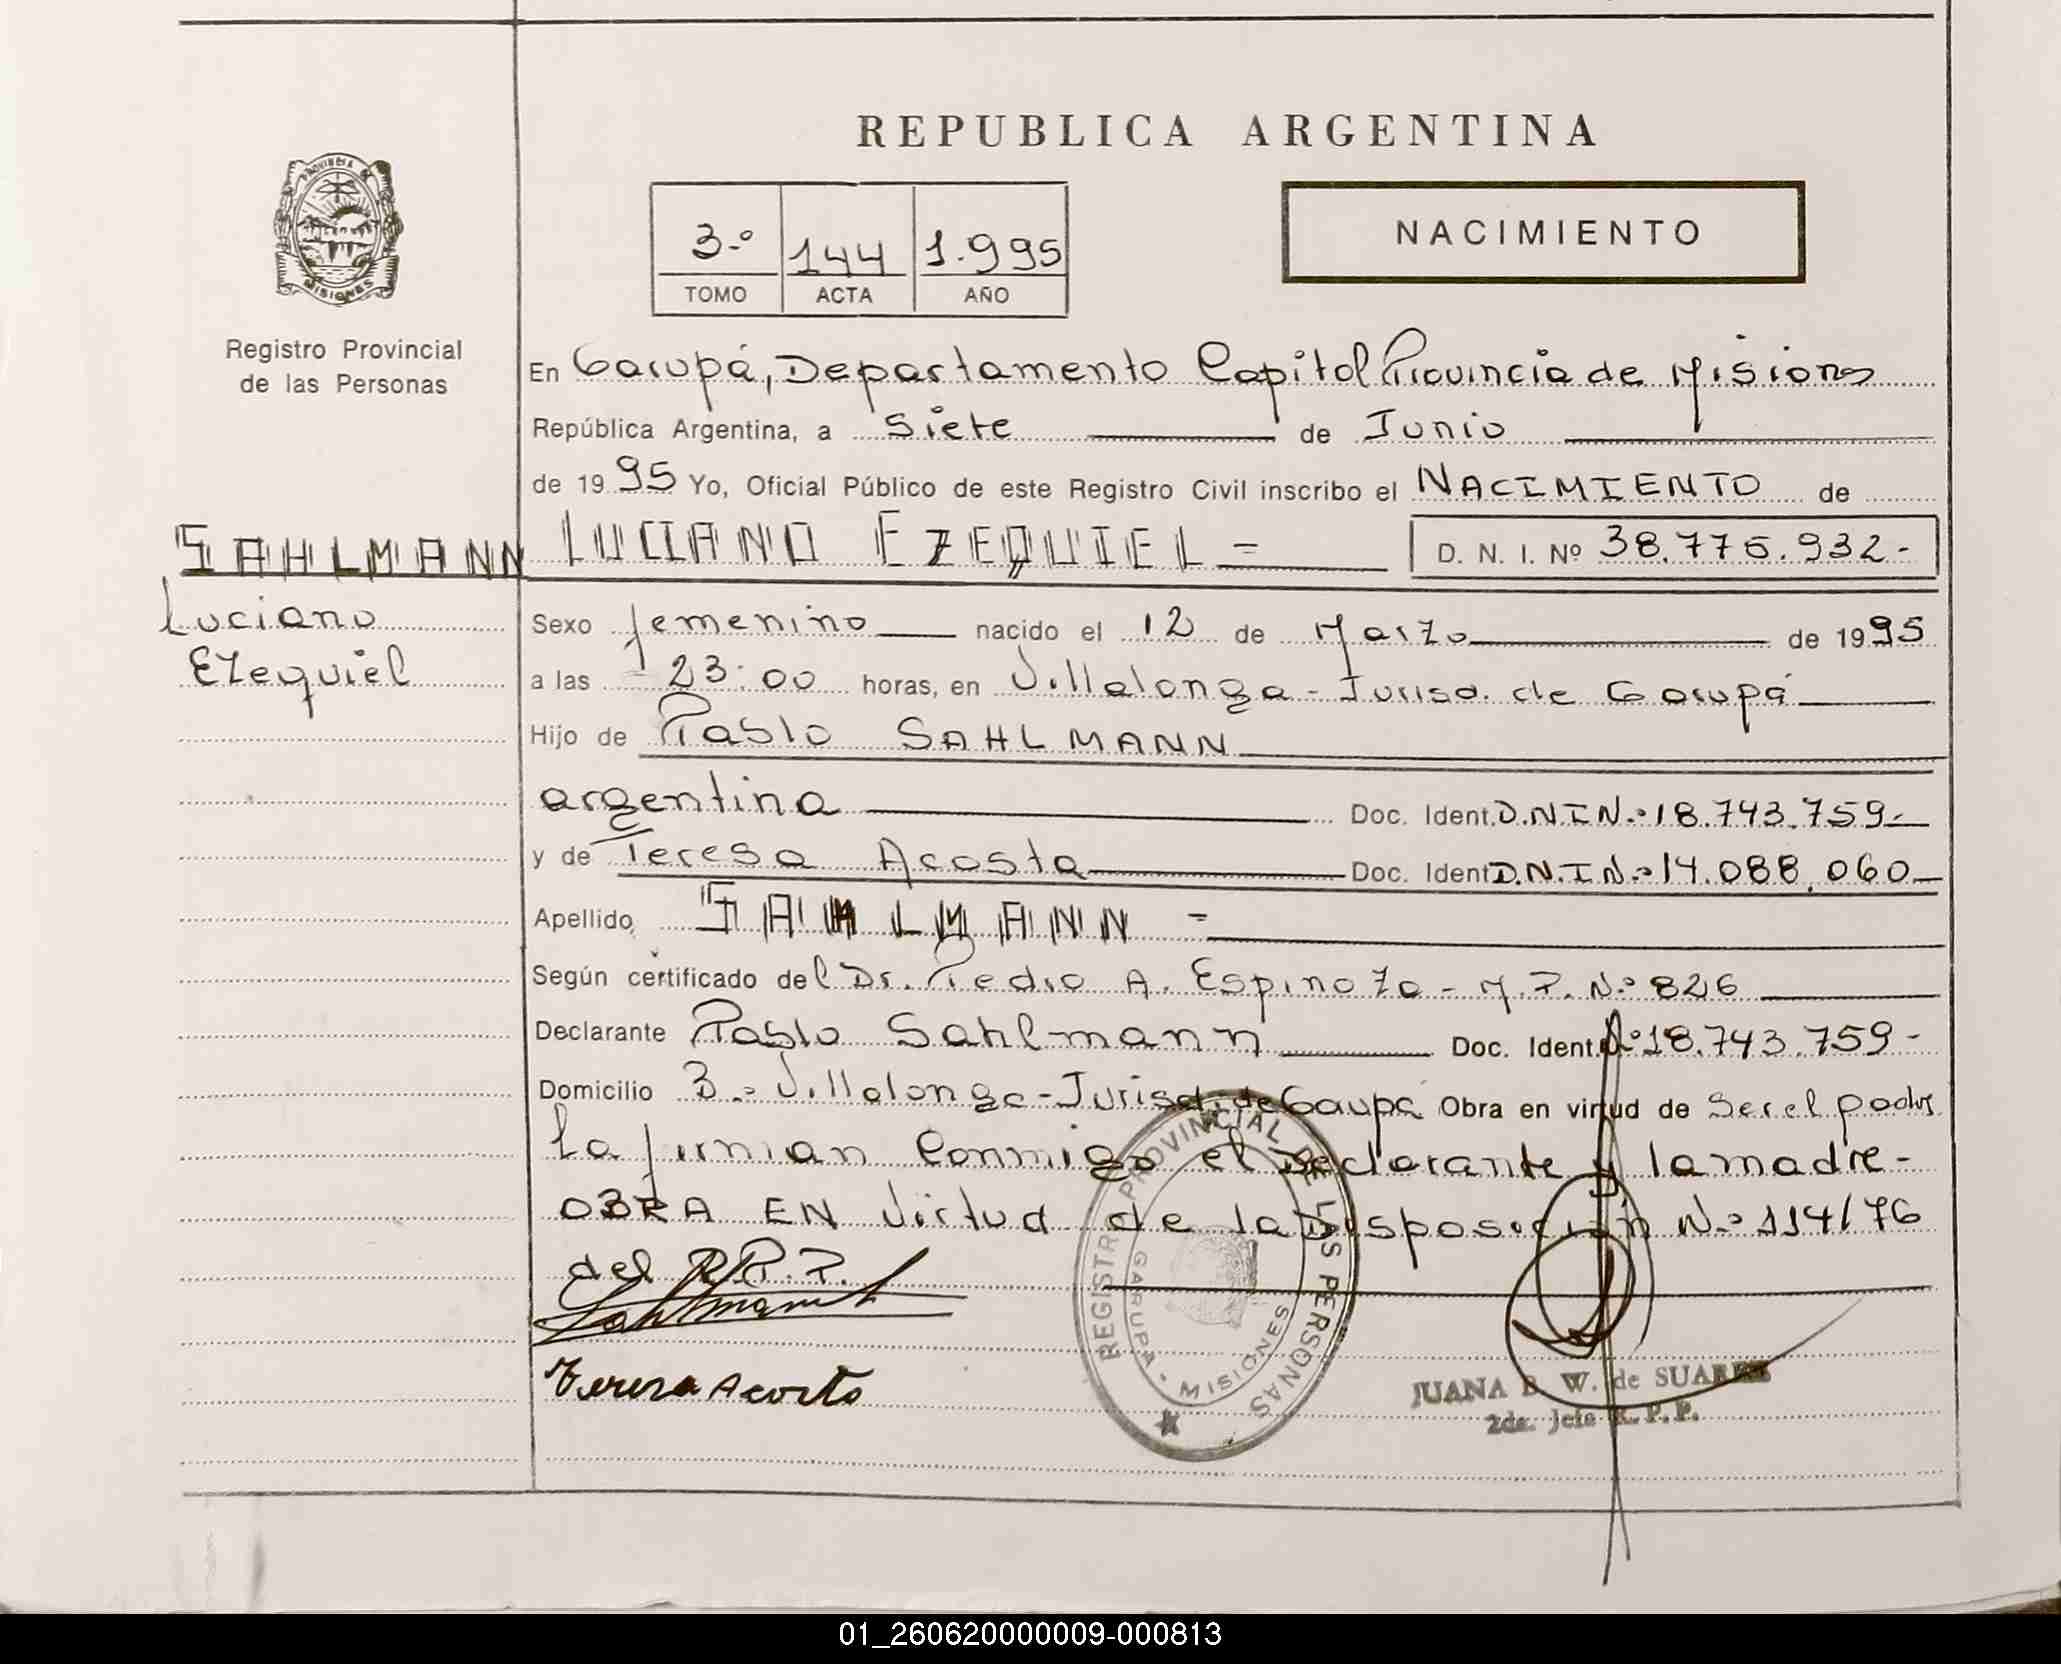 REPUBLICA ARGENTINA
PROVINCIA DE
MISIONES
Registro Provincial
de las Personas
3.º 144 1.995
TOMO ACTA AÑO
NACIMIENTO
En Garupá, Departamento Capital Provincia de Misiones
República Argentina, a Siete de Junio
de 1995 Yo, Oficial Público de este Registro Civil inscribo el NACIMIENTO de
SAHLMANN LUCIANO EZEQUIEL = D. N. I. Nº 38.775.932.-
Luciano
Ezequiel
Sexo femenino nacido el 12 de Marzo de 1995
a las 23:00 horas, en Villalonga - Jurisd. de Garupá
Hijo de Pablo SAHLMANN
argentina Doc. Ident. D.N.I N.º 18.743.759-
y de Teresa Acosta Doc. Ident D.N.I N.º 14.088.060
Apellido SAHLMANN -
Según certificado del Dr. Pedro A. Espinoza - M.P. N.º 826
Declarante Pablo Sahlmann Doc. Ident. Nº 18.743.759-
Domicilio B.º Villalonga - Jurisd. de Gaupá Obra en virtud de Ser el padre
La firman Conmigo el Declarante y la madre-
OBRA EN Virtud de la Disposición N.º 114/76
del R.P.P.
Sahlmann
Teresa Acosta
REGISTRO PROVINCIAL DE LAS PERSONAS
GARRUPA • MISIONES
JUANA B. W. de SUAREZ
2da. Jefe R.P.P.
01_260620000009-000813